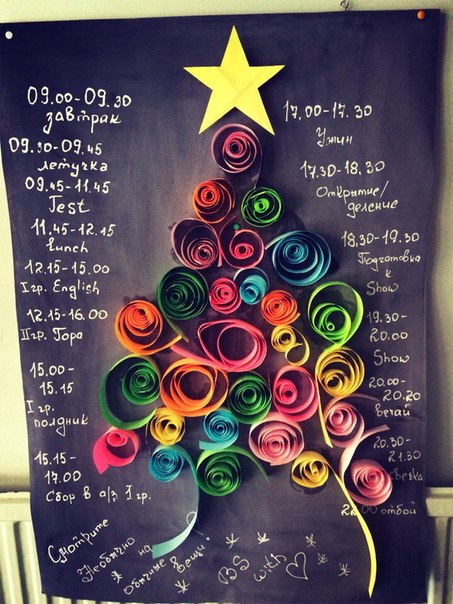 09.00-09.30
завтрак
09.30-09.45
летучка
09.45-11.45
Test
11.45-12.15
lunch
12.15-15.00
I гр. English
12.15-16.00
II гр. Гора
15.00-
15.15
I гр.
полдник
15.15-
17.00
Сбор в а/з I гр.
17.00-17.30
Ужин
17.30-18.30
Открытие/
деление
18.30-19.30
Подготовка
к
Show
19.30-
20.00
Show
20.00-
20.20
вечай
20.30-
21.30
отбой
Смотрите
Необычно на
Обычные вещи!
BS
with ♡